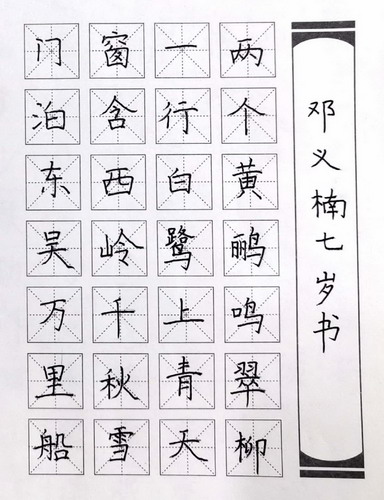 邓义楠七岁书
两个黄鹂鸣翠柳
一行白鹭上青天
窗含西岭千秋雪
门泊东吴万里船